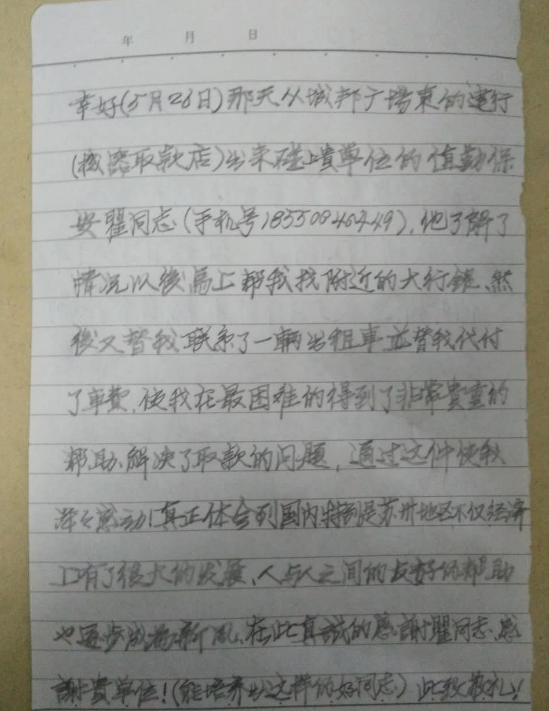 年 月 日
幸好(5月26日)那天从城邦广場東的建行
(機器取款店)出来碰上貴単位的值勤保
安瞿同志(手机号18550846449),他了解了
情况以後馬上帮我找附近的大行錶、然
後又替我联系了一輛出租車並替我代付
了車費,使我在最困难的得到了非常貴重的
帮助.解决了取款的问題,通过这件使我
深々感动!真正体会到国内特别是苏州地区不仅经济
上有了很大的发展,人与人之间的友好的帮助
也逐步成為新風,在此真誠的感謝瞿同志,感
謝貴单位!(能培养出这样的好同志)此致敬礼!